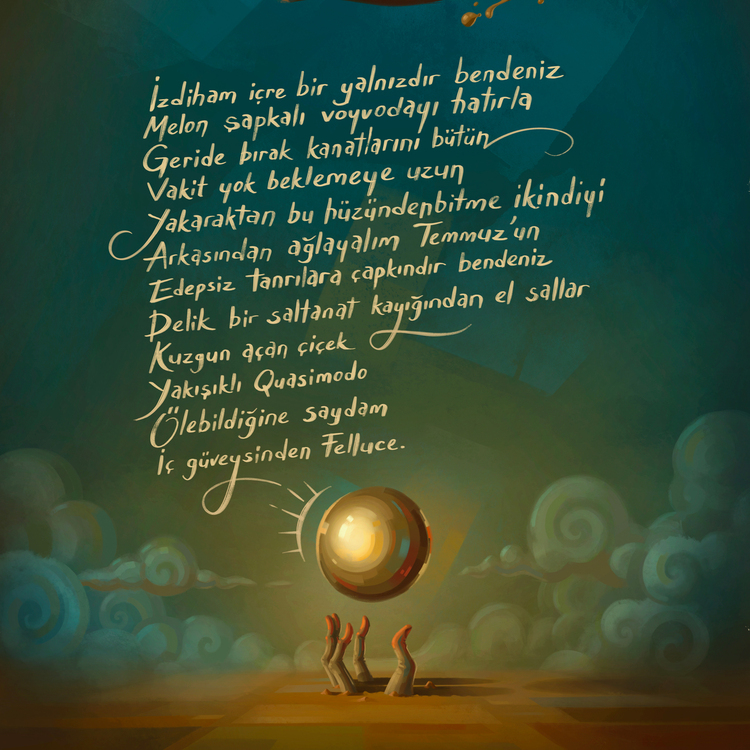 İzdiham içre bir yalnızdır bendeniz
Melon şapkalı voyvodayı hatırla
Geride bırak kanatlarını bütün
Vakit yok beklemeye uzun
Yakaraktan bu hüzündenbitme ikindiyi
Arkasından ağlayalım Temmuz'un
Edepsiz tanrılara çapkındır bendeniz
Delik bir saltanat kayığından el sallar
Kuzgun açan çiçek
Yakışıklı Quasimodo
Ölebildiğine saydam
İç güveysinden Felluce.